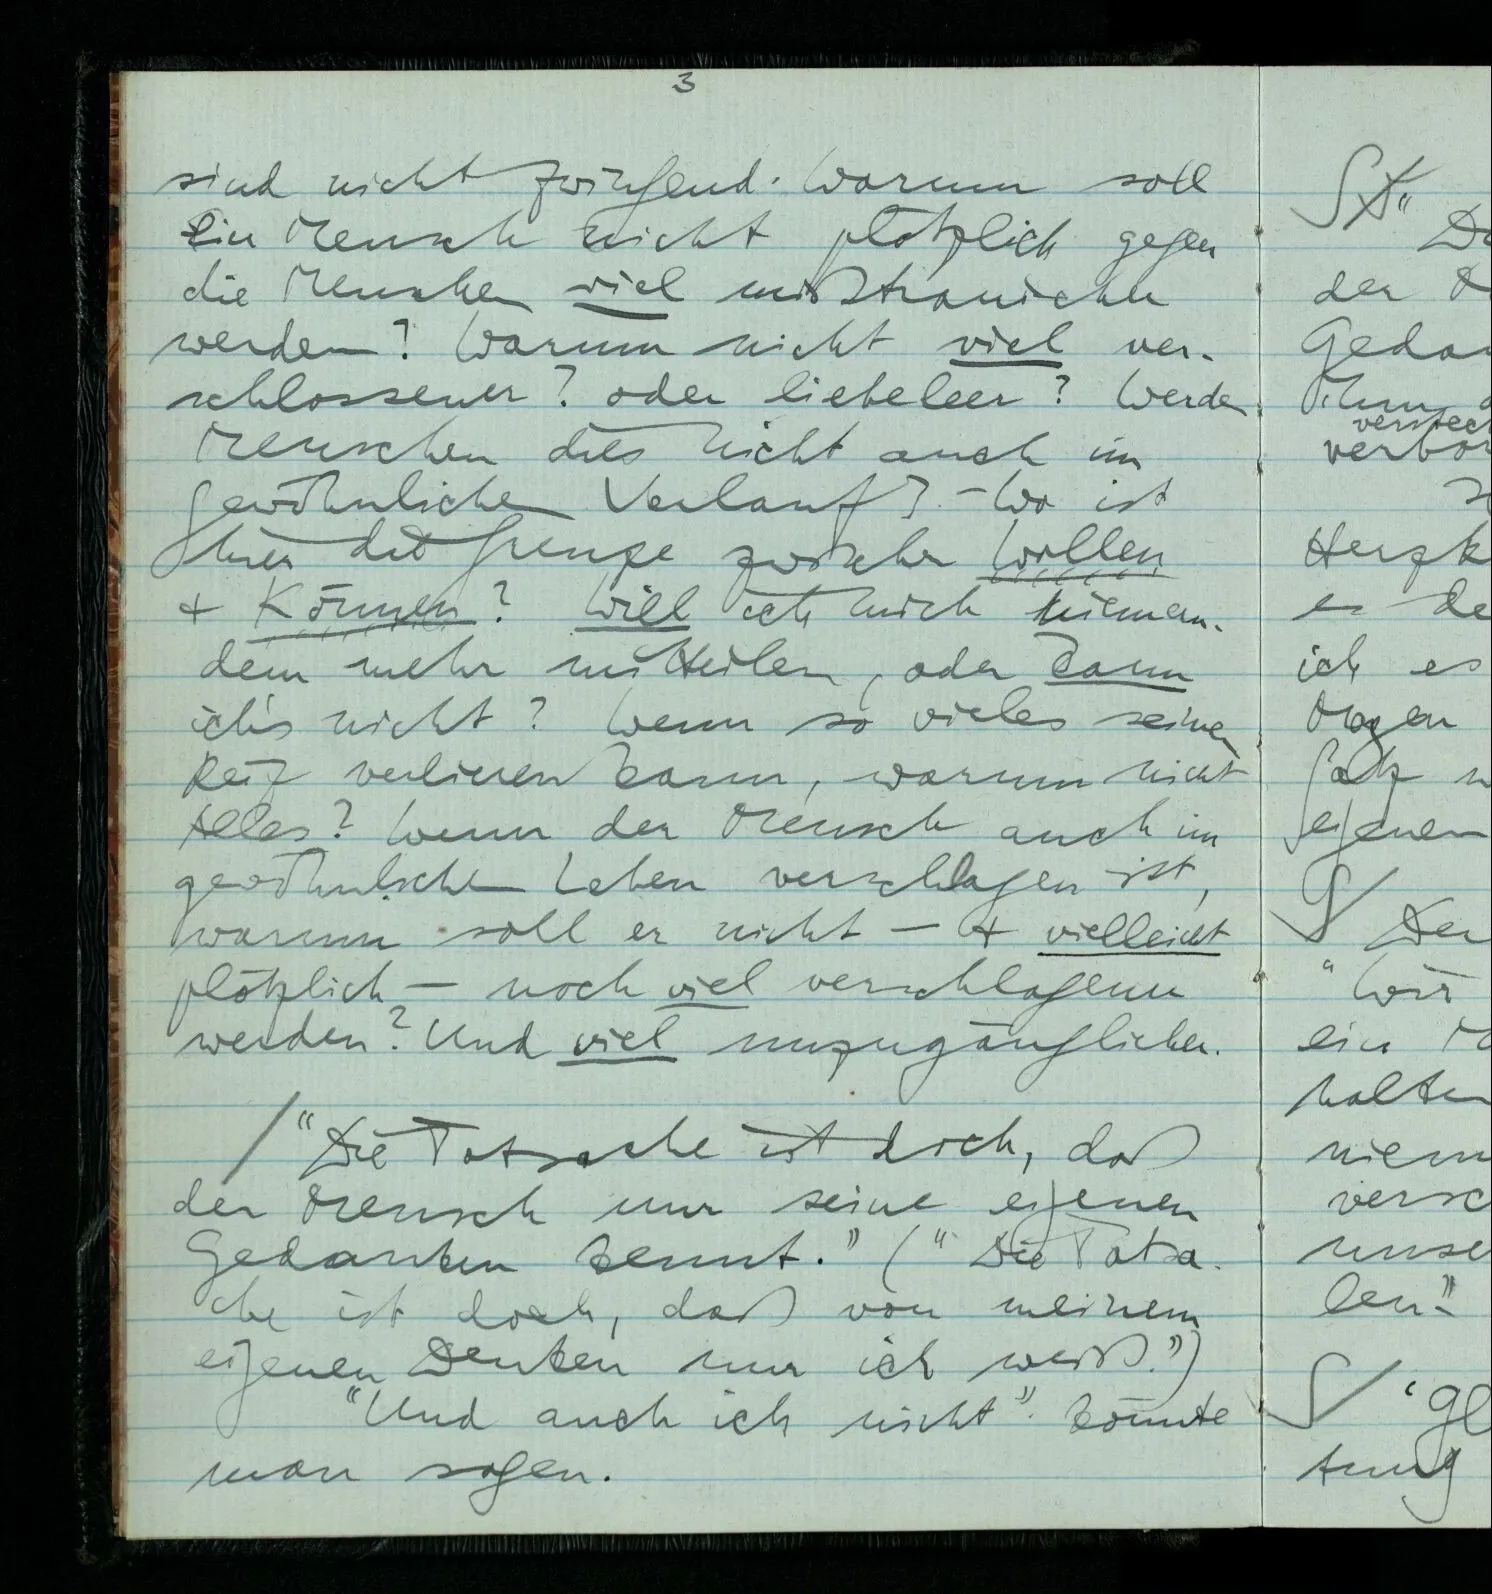 3
sind nicht zwingend. Warum soll
ein Mensch nicht plötzlich gegen
die Menschen viel mißtrauischer
werden? Warum nicht viel ver-
schlossener? oder liebeleer? Werden
Menschen dies nicht auch im
gewöhnlichen Verlauf? – Wo ist
hier die Grenze zwischen Wollen
+ Können? Will ich mich nieman-
dem mehr mitteilen, oder kann
ich's nicht? Wenn so vieles seinen
Reiz verlieren kann, warum nicht
Alles? Wenn der Mensch auch im
gewöhnlichen Leben verschlagen ist,
warum soll er nicht – + vielleicht
plötzlich – noch viel verschlagener
werden? Und viel unzugänglicher.
/ "Die Tatsache ist doch, daß
der Mensch nur seine eigenen
Gedanken kennt." ("Die Tatsa-
che ist doch, daß von meinem
eigenen Denken nur ich weiß.")
"Und auch ich nicht" könnte
man sagen.
der
Gedan
ihm
versteck
verbor
Herzk
er de
ich es
Satz
eigenen
S/ Der
"Wir
ein M
halten
niem
versc
unse
len"
S/ "Gl
tung